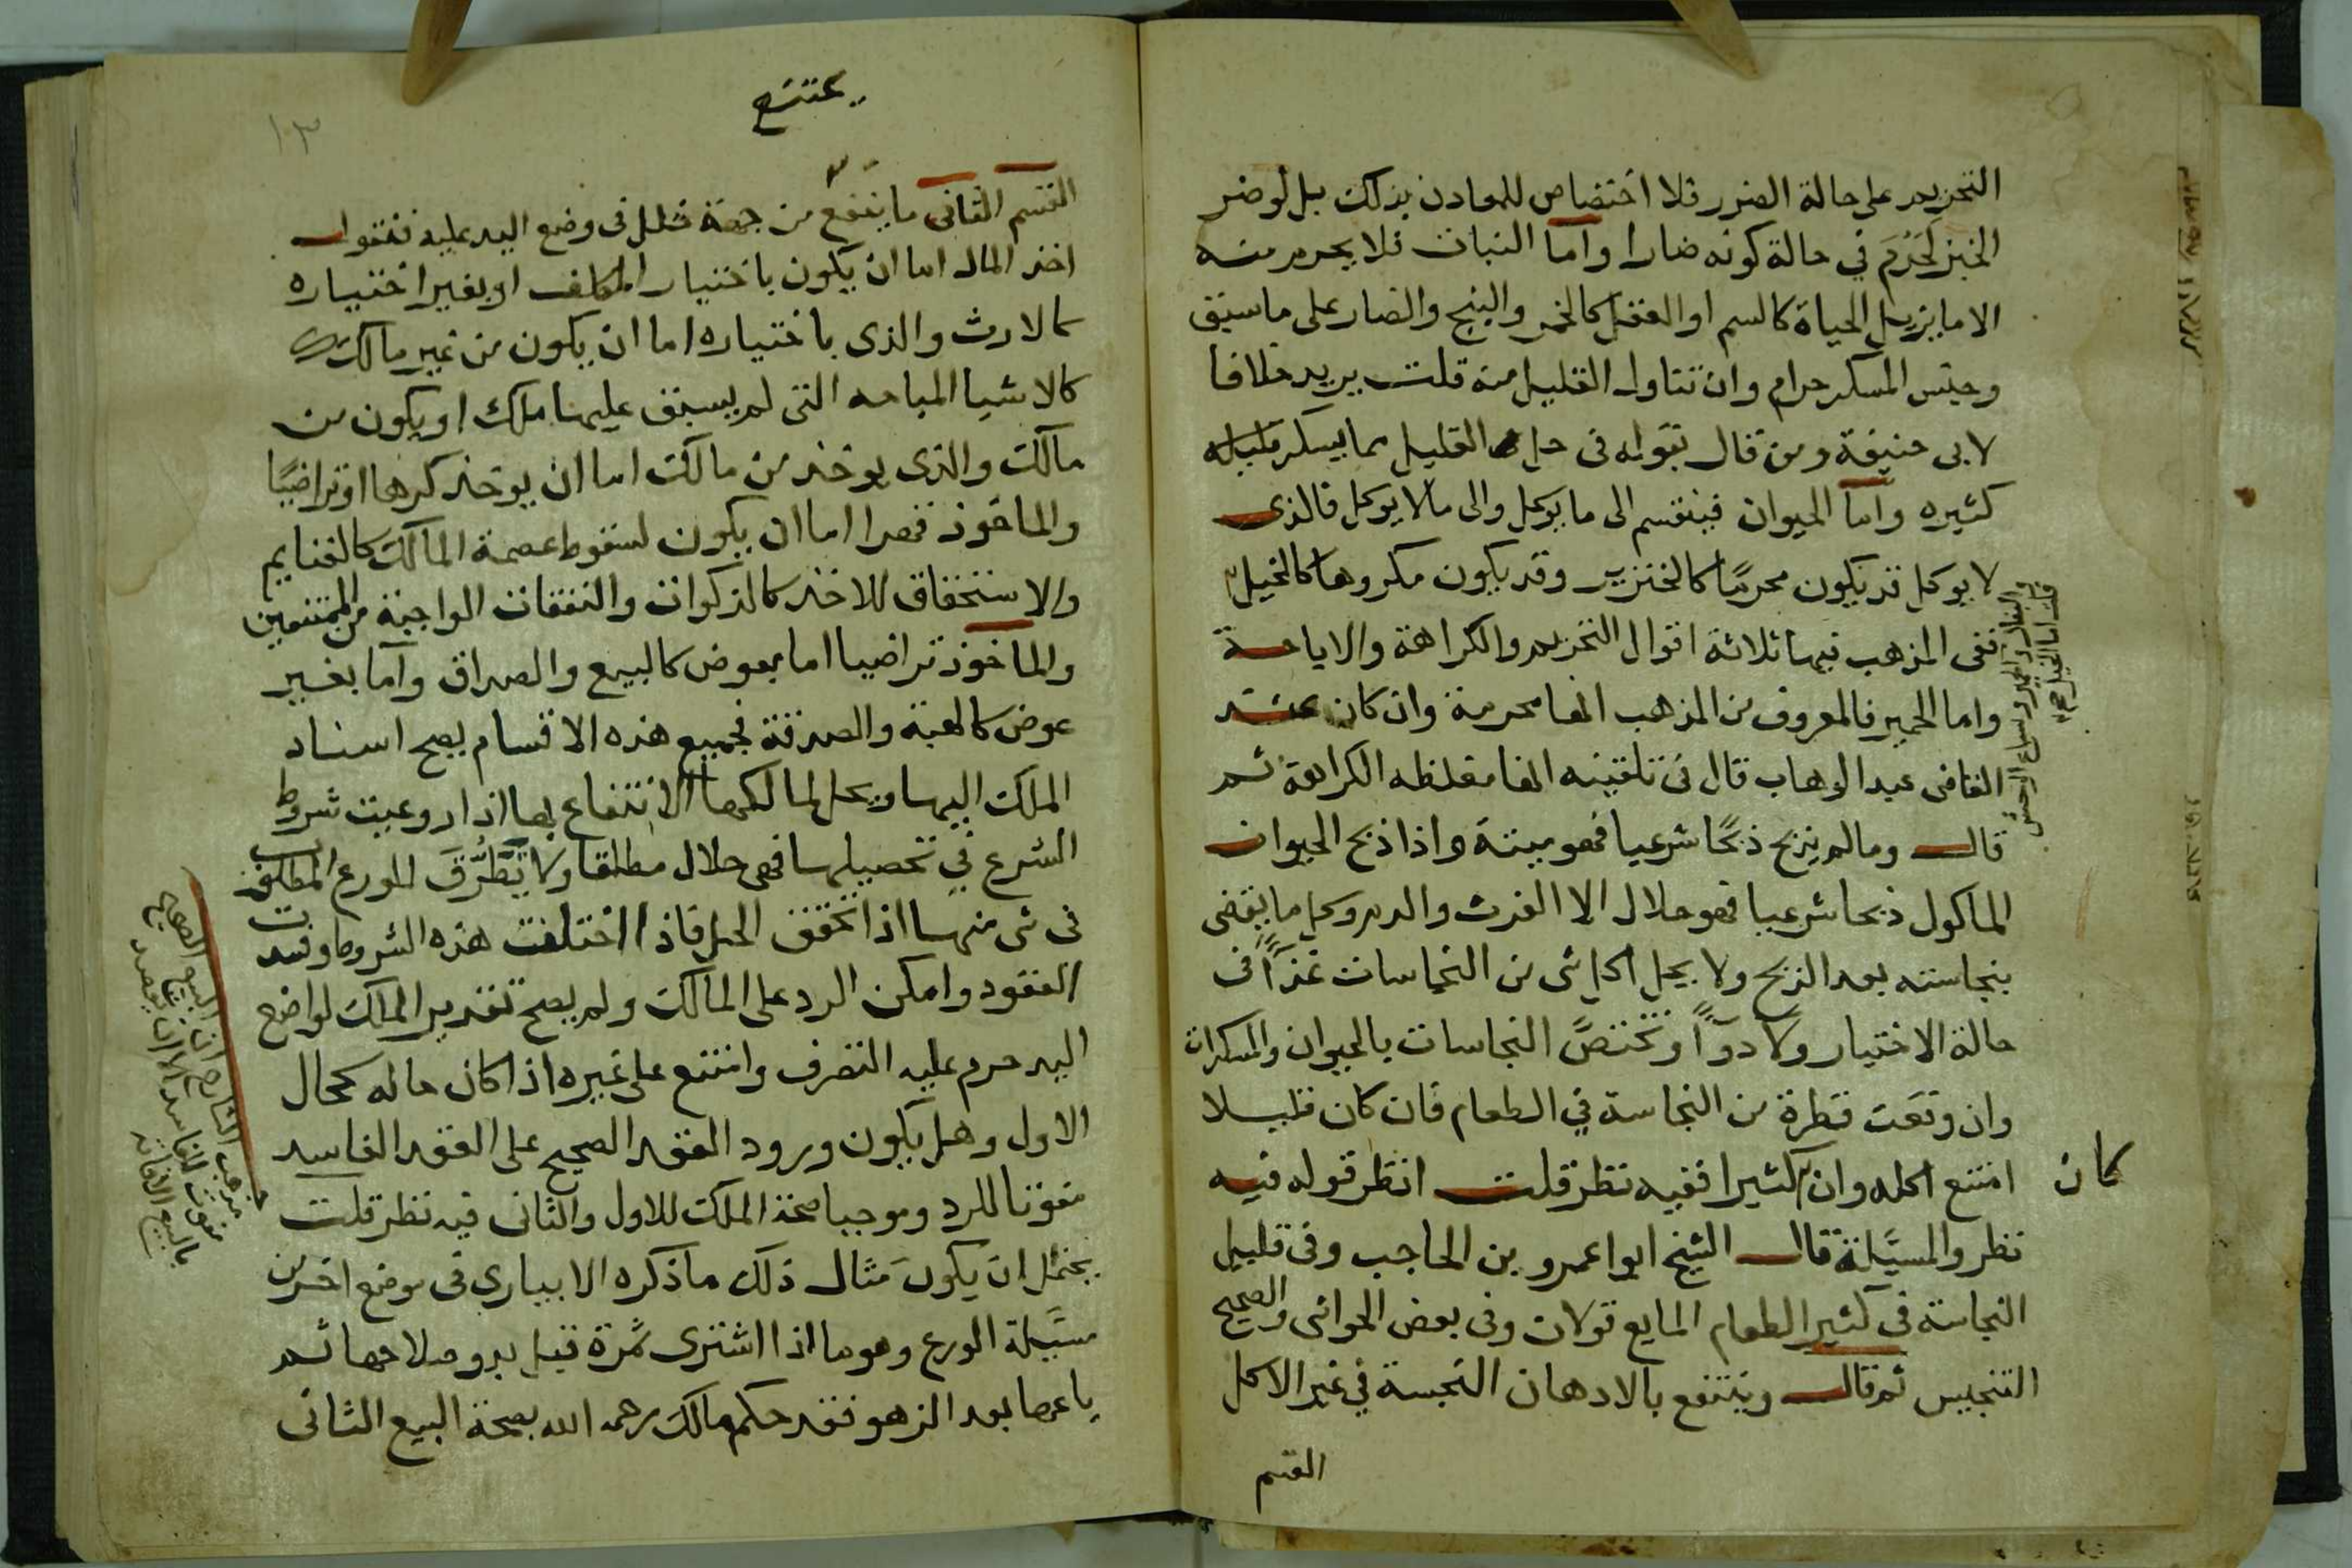 التحريم على حالة الضرر فلا اختصاص للمعادن بذلك بل لو ضر
الخبز لَحَرُمَ في حالة كونه ضارا واما النبات فلا يحرم منه
الا ما يزيل الحياة كالسم او العقل كالخمر والبنج والضار على ما سبق
وجنس المسكر حرام وان تناول القليل منه قلت يريد خلافا
لابي حنيفة ومن قال بقوله في حل القليل مما يسكر
كثيره واما الحيوان فينقسم الى ما يوكل والى مالا يوكل فالذي
لا يوكل قد يكون محرمًا كالخنزير وقد يكون مكروها كالخيل
قلت اما الخيل
والبغال والحمير وسباع الوحش
ففي المذهب فيها ثلاثة اقوال التحريم والكراهة والاباحة
واما الحمير فالمعروف من المذهب انها محرمة وان كان عند
القاضى عبد الوهاب قال في تلقينه انها مغلظه الكراهة ثم
قال وما لم يذبح ذبحًا شرعيا فهو ميتة واذا ذبح الحيوان
الماكول ذبحا شرعيا فهو حلال الا الفرث والدم وكل ما يقضى
بنجاسته بعد الذبح ولا يحل اكل شى من النجاسات غذآءً في
حالة الاختيار ولا دوآءً وتختصَّ النجاسات بالحيوان والمسكرات
وان وقعت قطرة من النجاسة في الطعام فان كان قليلا
امتنع اكله وان كان كثيرا ففيه نظر قلت انظر قوله فيه
نظر والمسئلة قال الشيخ ابوا عمرو بن الحاجب وفى قليل
النجاسة في كثير الطعام المايع قولان وفى بعض الحواشى والصحيح
التنجيس ثم قال وينتفع بالادهان النجسة في غير الاكل
القسم
يمتنع
١٣
القسم الثانى ما يمتنع من جهة خلل فى وضع اليد عليه فنقول
اخذ المال اما ان يكون باختيار المكلف او بغير اختياره
كالارث والذى باختياره اما ان يكون من غير مالك
كالاشيا المباحه التى لم يسبق عليها ملك او يكون من
مالك والذى يوخذ من مالك اما ان يوخذ كرها او تراضيًا
والماخوذ قهرا اما ان يكون لسقوط عصمة المالك كالغنايم
والاستحقاق للاخذ كالزكوات والنفقات الواجبة من الممتنعين
والماخوذ تراضيا اما بعوض كالبيع والصداق واما بغير
عوض كالهبة والصدقة فجميع هذه الاقسام يصح اسناد
الملك اليها ويحل لمالكها الانتفاع بها اذا روعيت شروط
الشرع في تحصيلها فهى حلال مطلقا ولا تَطَّرُّقَ للورع المطلوب
فى شى منها اذا تحقق الحل فاذا اختلفت هذه الشروط وفسدت
العقود وامكن الرد على المالك ولم يصح تقدير الملك لواضع
اليد حرم عليه التصرف وامتنع على غيره اذا كان حاله كحال
الاول وهل يكون ورود العقد الصحيح على العقد الفاسد
مفوتا للرد وموجبا صحة الملك للاول والثانى فيه نظر قلت
يحتمل ان يكون مثال ذلك ما ذكره الابياري فى موضع اخر من
مسئلة الورع وهو ما اذا اشترى ثمرة قبل بدو صلاحها ثم
باعها بعد الزهو فقد حكم مالك رحمه الله بصحة البيع الثانى
مذهب الشارح ان البيع الصحيح
مفوت للفاسد الا ان يقصد
بالبيع الافاته